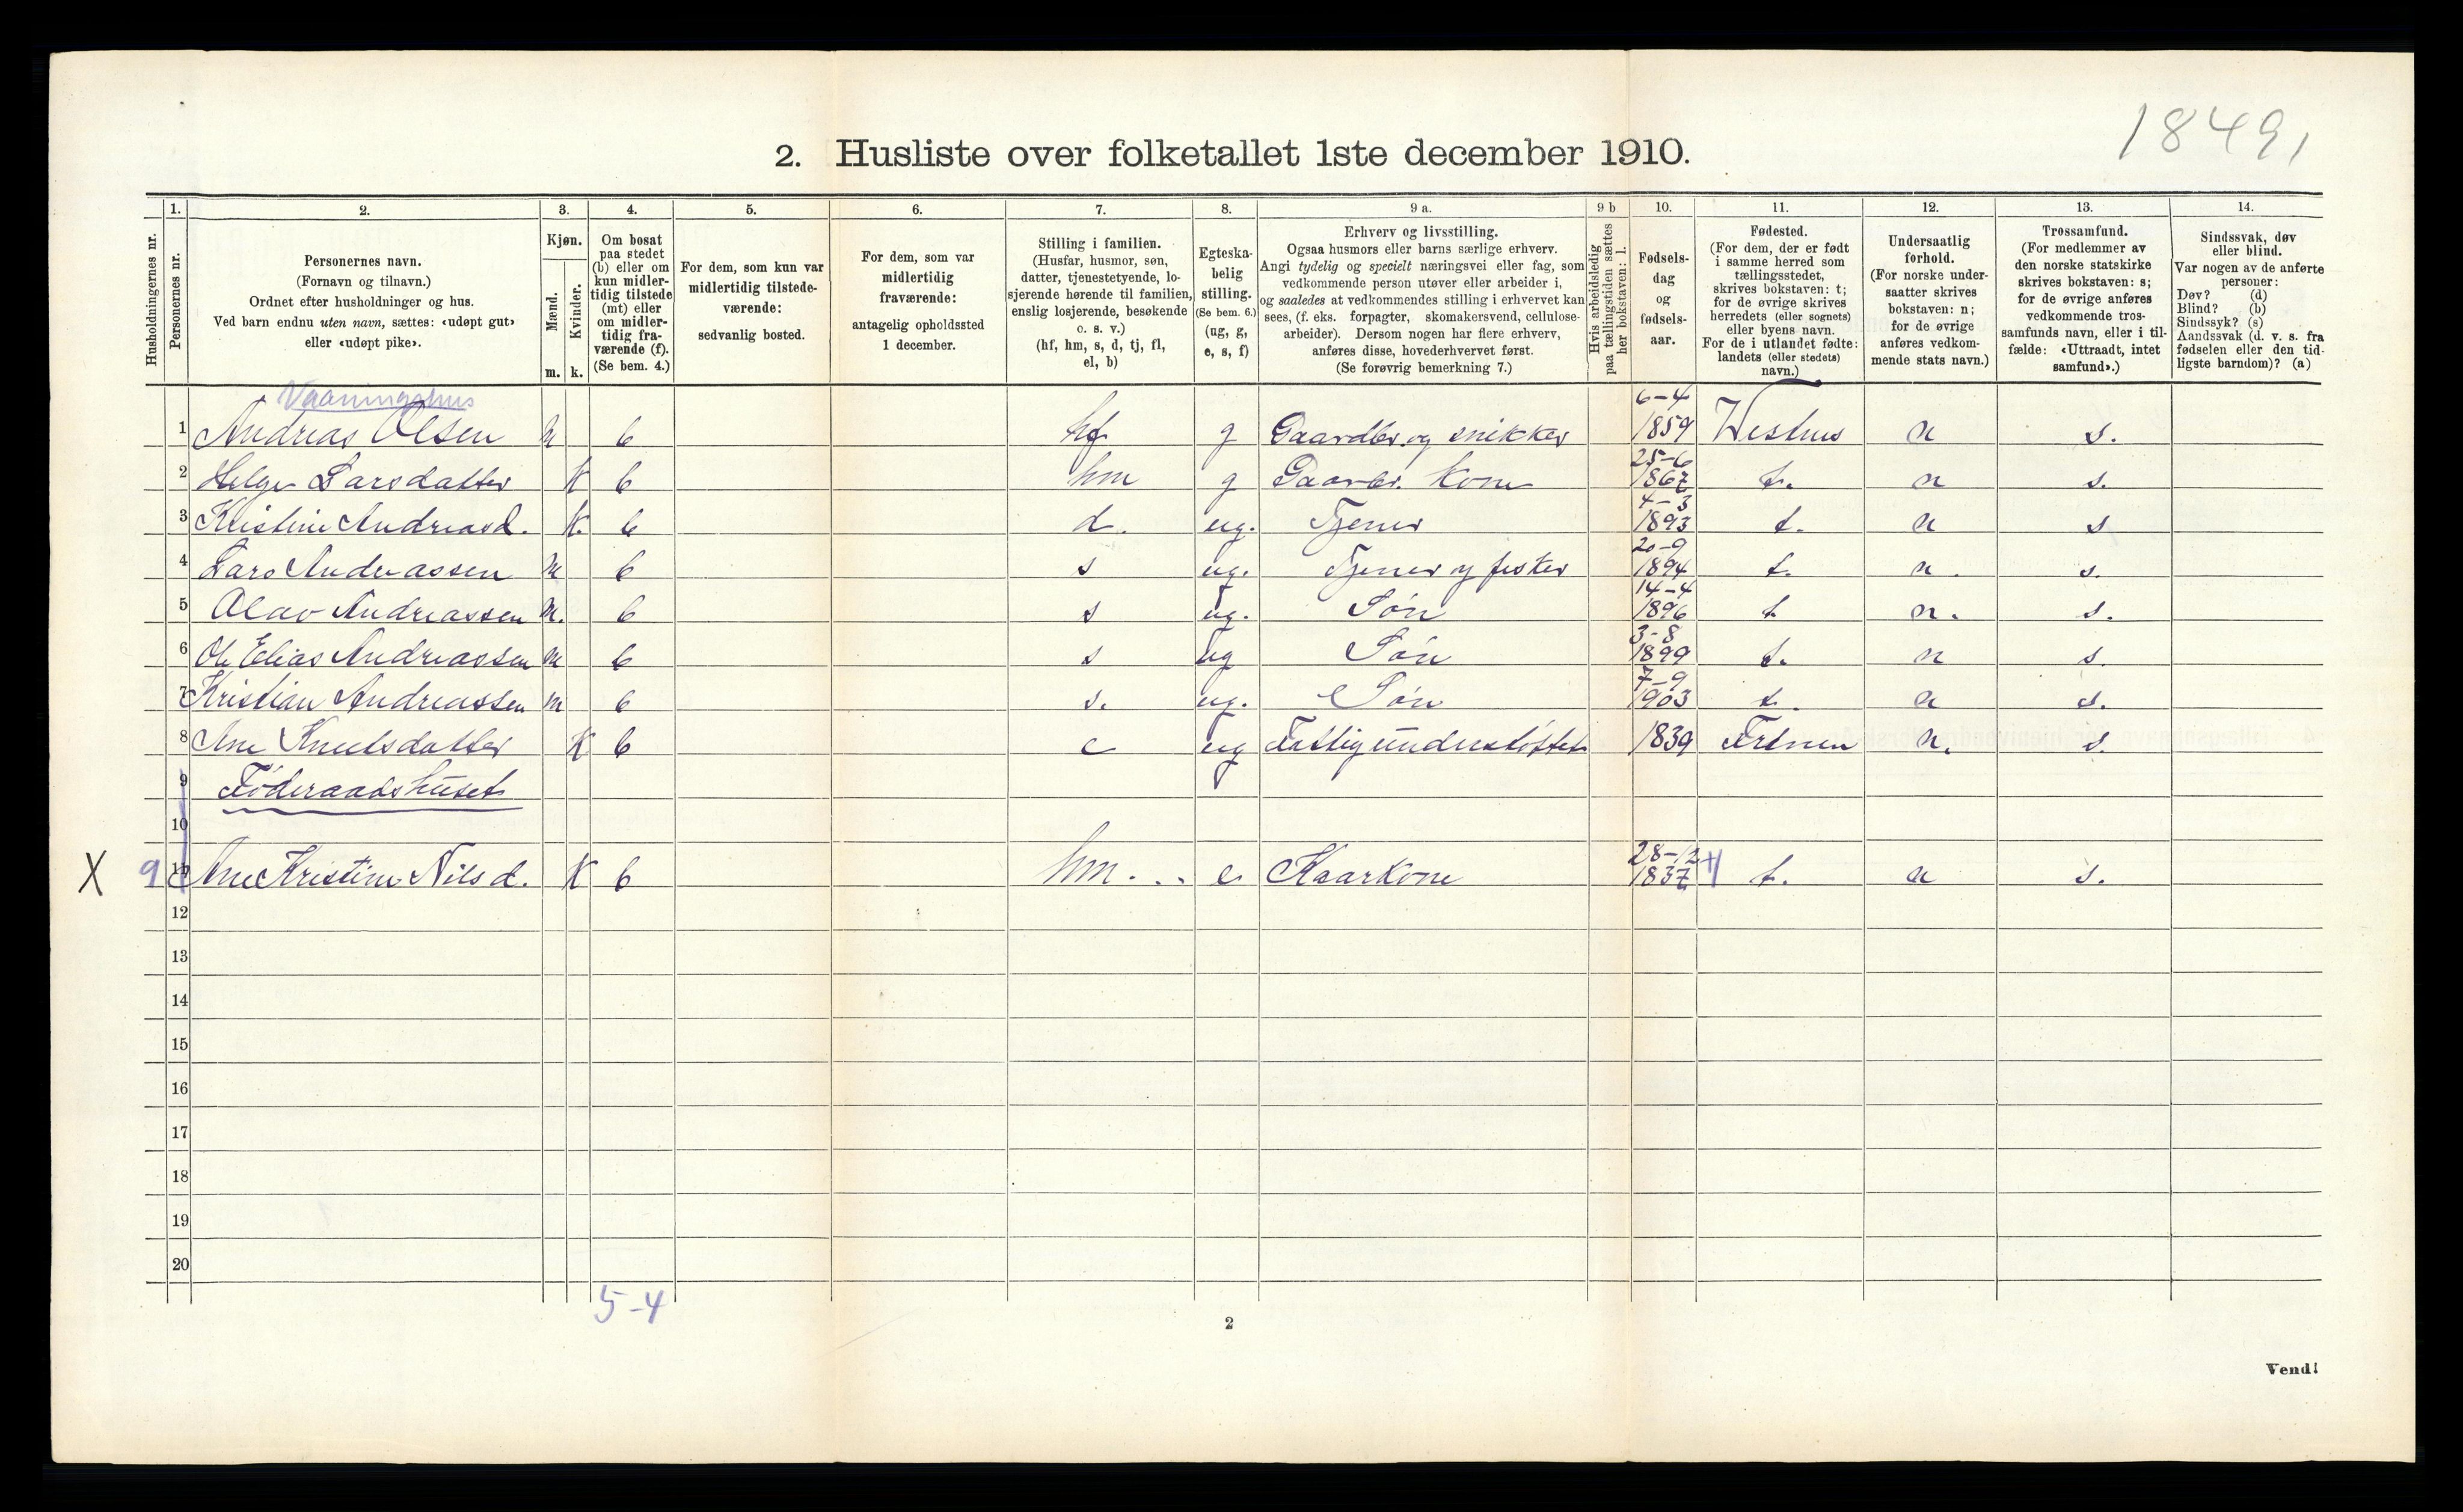 1849,
2. Husliste over folketallet 1ste december 1910.
Husholdningernes nr.
1.
Personernes nr.
2.
Personernes navn.
(Fornavn og tilnavn.)
Ordnet efter husholdninger og hus.
Ved barn endnu uten navn, sættes: «udøpt gut»
eller «udøpt pike».
3.
Kjøn.
Mænd.
Kvinder.
m. k.
4.
Om bosat
paa stedet
(b) eller om
kun midler-
tidig tilstede
(mt) eller
om midler-
tidig fra-
værende (f).
(Se bem. 4.)
5.
For dem, som kun var
midlertidig tilstede-
værende:
sedvanlig bosted.
6.
For dem, som var
midlertidig
fraværende:
antagelig opholdssted
1 december.
7.
Stilling i familien.
(Husfar, husmor, søn,
datter, tjenestetyende, lo-
sjerende hørende til familien,
enslig losjerende, besøkende
o. s. v.)
(hf, hm, s, d, tj, fl,
el, b)
8.
Egteska-
belig
stilling.
(Se bem. 6.)
(ug, g,
e, s, f)
9 a.
Erhverv og livsstilling.
Ogsaa husmors eller barns særlige erhverv.
Angi tydelig og specielt næringsvei eller fag, som
vedkommende person utøver eller arbeider i,
og saaledes at vedkommendes stilling i erhvervet kan
sees, (f. eks. forpagter, skomakersvend, cellulose-
arbeider). Dersom nogen har flere erhverv,
anføres disse, hovederhvervet først.
(Se forøvrig bemerkning 7.)
9 b
Hvis arbeidsledig
paa tællingstiden sættes
her bokstaven: l.
10.
Fødsels-
dag
og
fødsels-
aar.
11.
Fødested.
(For dem, der er født
i samme herred som
tællingsstedet,
skrives bokstaven: t;
for de øvrige skrives
herredets (eller sognets)
eller byens navn.
For de i utlandet fødte:
landets (eller stedets)
navn.)
12.
Undersaatlig
forhold.
(For norske under-
saatter skrives
bokstaven: n;
for de øvrige
anføres vedkom-
mende stats navn.)
13.
Trossamfund.
(For medlemmer av
den norske statskirke
skrives bokstaven: s;
for de øvrige anføres
vedkommende tros-
samfunds navn, eller i til-
fælde: «Uttraadt, intet
samfund».)
14.
Sindssvak, døv
eller blind.
Var nogen av de anførte
personer:
Døv? (d)
Blind? (b)
Sindssyk? (s)
Aandssvak (d. v. s. fra
fødselen eller den tid-
ligste barndom)? (a)
Vaaningshus
1 Andreas Olsen m b hf g Gaardbr. og snikker 6-4 1859 n s.
2 Helge Larsdatter K b hm g Gaardbr. Kone 25-6 1867 t. n s.
3 Kristine Andreasd. K. b d. ug. Tjener 4-3 1893 t. n s
4 Lars Andreassen m b s ug. Tjener og fisker 20-9 1894 t. n. s.
5 Olav Andreassen m. b s ug. Søn 14-4 1896 t n. s.
6 Ole Elias Andreassen m b s ug Søn 3-8 1899 t. n s.
7 Kristian Andreassen m b s. ug. Søn 7-9 1903 t. n s.
8 Ane Knutsdatter K b ug Fattigunderstøttet 1839 n. s.
9 Føderaadshuset
10
X 9 11 Ane Kristine Nilsd. K b hm. . . e Kaarkone 28-12 1837 t. n s.
12
13
14
15
16
17
18
19
20
5-4
2
Vend!